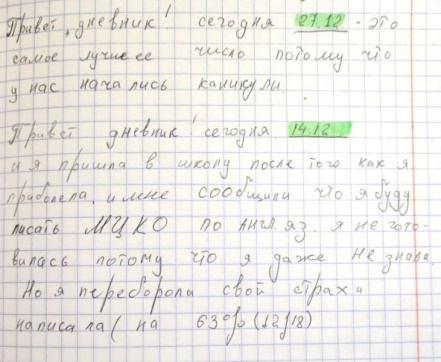 Привет, дневник! сегодня 27.12 - это
самое лучшее число потому что
у нас начались каникули.
Привет дневник! сегодня 14.12
и я пришла в школу после того как я
праболела, и мне сообщили что я буду
писать МЦКО по англ. яз. я не гото-
вилась потому что я даже не знала.
Но я переборола свой страх и
написала ( на 63% (12/18)